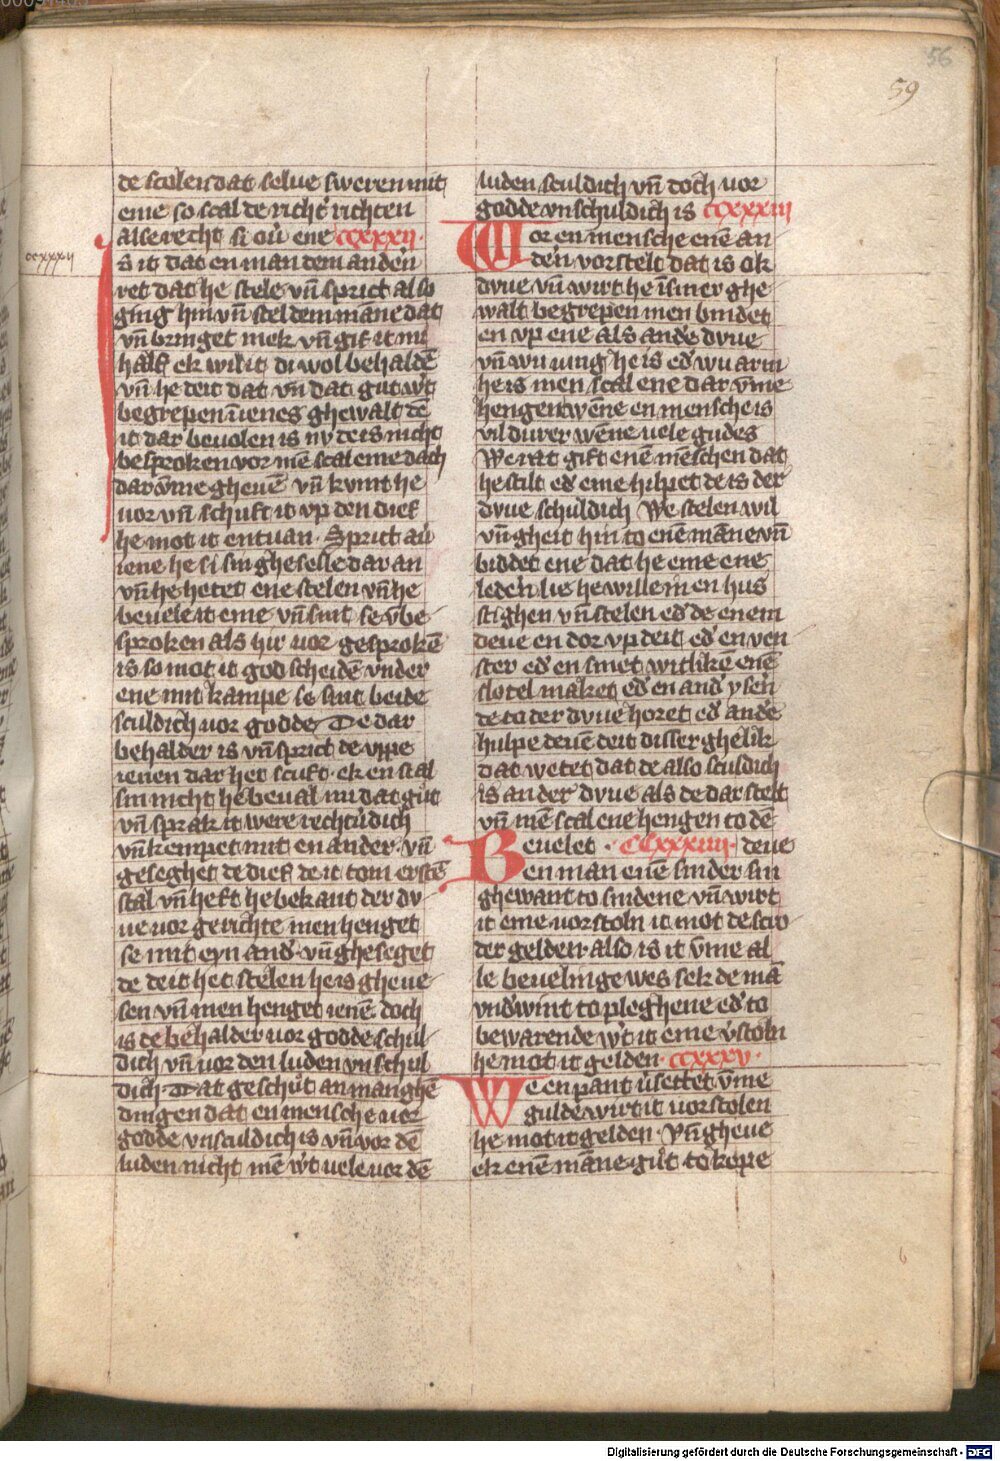 56
59
de scolen dat selue sweren mit
eme so scal de richt' richten
alse recht si ou͛ ene ccxxxii
ccxxxii
Is it dat en man dem anderͤn
ret dat he stele vn̄ sprict also
ging hin vn̄ stel dem māne dat
vn̄ bringet mek vn̄ gif it mi
half ek wil it di wol behaldē
vn̄ he deit dat vn̄ dat gut w͛t
begrepen ī ienes ghewalt dē
it dar beuolen is ny de is nicht
besproken vor mē scal eme doch
dar v̄me gheuē vn̄ kvmt he
uor vn̄ schuft it vp den dief
he mot it entuan Sprict au͛
iene he si sin gheselle dar an
vn̄ he hetet ene stelen vn̄ he
beuele it eme vn̄ sint se v̄be
sproken als hir uor gesprokē
is so mot it god scheidē vnder
ene mit kampe se sint beide
sculdich uor godde De dar
behalder is vn̄ sprict de vppe
ienen dar het scuft ek en stal
sin nicht he beual mi dat gut
vn̄ sprak it were rechtu͛dich
vn̄ kempet mit en ander vn̄
geseghet de dief de it tom erstē
stal vn̄ heft he bekant der du
ue uor gerichte men henget
se mit eyn and͛ vn̄ gheseget
de deit het stelen he is gheue
sen vn̄ men henget ienē doch
is de behalder uor godde schul
dich vn̄ uor den luden vnschul
dich Dat geschut an manghē
dingen dat en mensche uor
godde vnsculdich is vn̄ vor dē
luden nicht mē w͛t uele uor dē
luden sculdich vn̄ doch uor
godde vnschuldich is ccxxxiii
Wor en mensche enē an
dern vorstelt dat is ok
dvue vn̄ wirt he īsiner ghe
walt begrepen men bindet
en vp ene als ande dvue
vn̄ wu iung he is ed͛ wu arm
he is men scal ene dar v̄me
hengen wēne en mensche is
vil durer wēne uele gudes
We rat gift enē mēschen dat
he stilt ed͛ eme hilpet de is der
dvue schuldich We stelen wil
vn̄ gheit hin to enē māne vn̄
biddet ene dat he eme ene
leder͛ lie he wille in en hus
stighen vn̄ stelen ed͛ de enem
deue en dor vp deit ed͛ en ven
ster ed͛ en smet witlikē enē
slotel maket ed͛ en and͛ ysern
de to der dvue horet ed͛ ande
hulpe deme deit disser ghelik
dat wetet dat de also sculdich
is an der dvue als de dar stelt
vn̄ mē scal ene hengen to dē
deue
Beuelet ccxxxiiii
en man enē snider sin
ghewant to snidene vn̄ wirt
it eme uorstoln it mot de scro
der gelden also is it v̄me al
le beuelinge wes sek de mā
vnd͛wint to pleghene ed͛ to
bewarende w͛t it eme v͛stoln
he mot it gelden ccxxxv
We en pant u͛settet v̄me
gulde wirt it uorstolen
he mot it gelden Vn̄ gheue
ek enē māne gut to kope
Digitalisierung gefördert durch die Deutsche Forschungsgemeinschaft - DFG